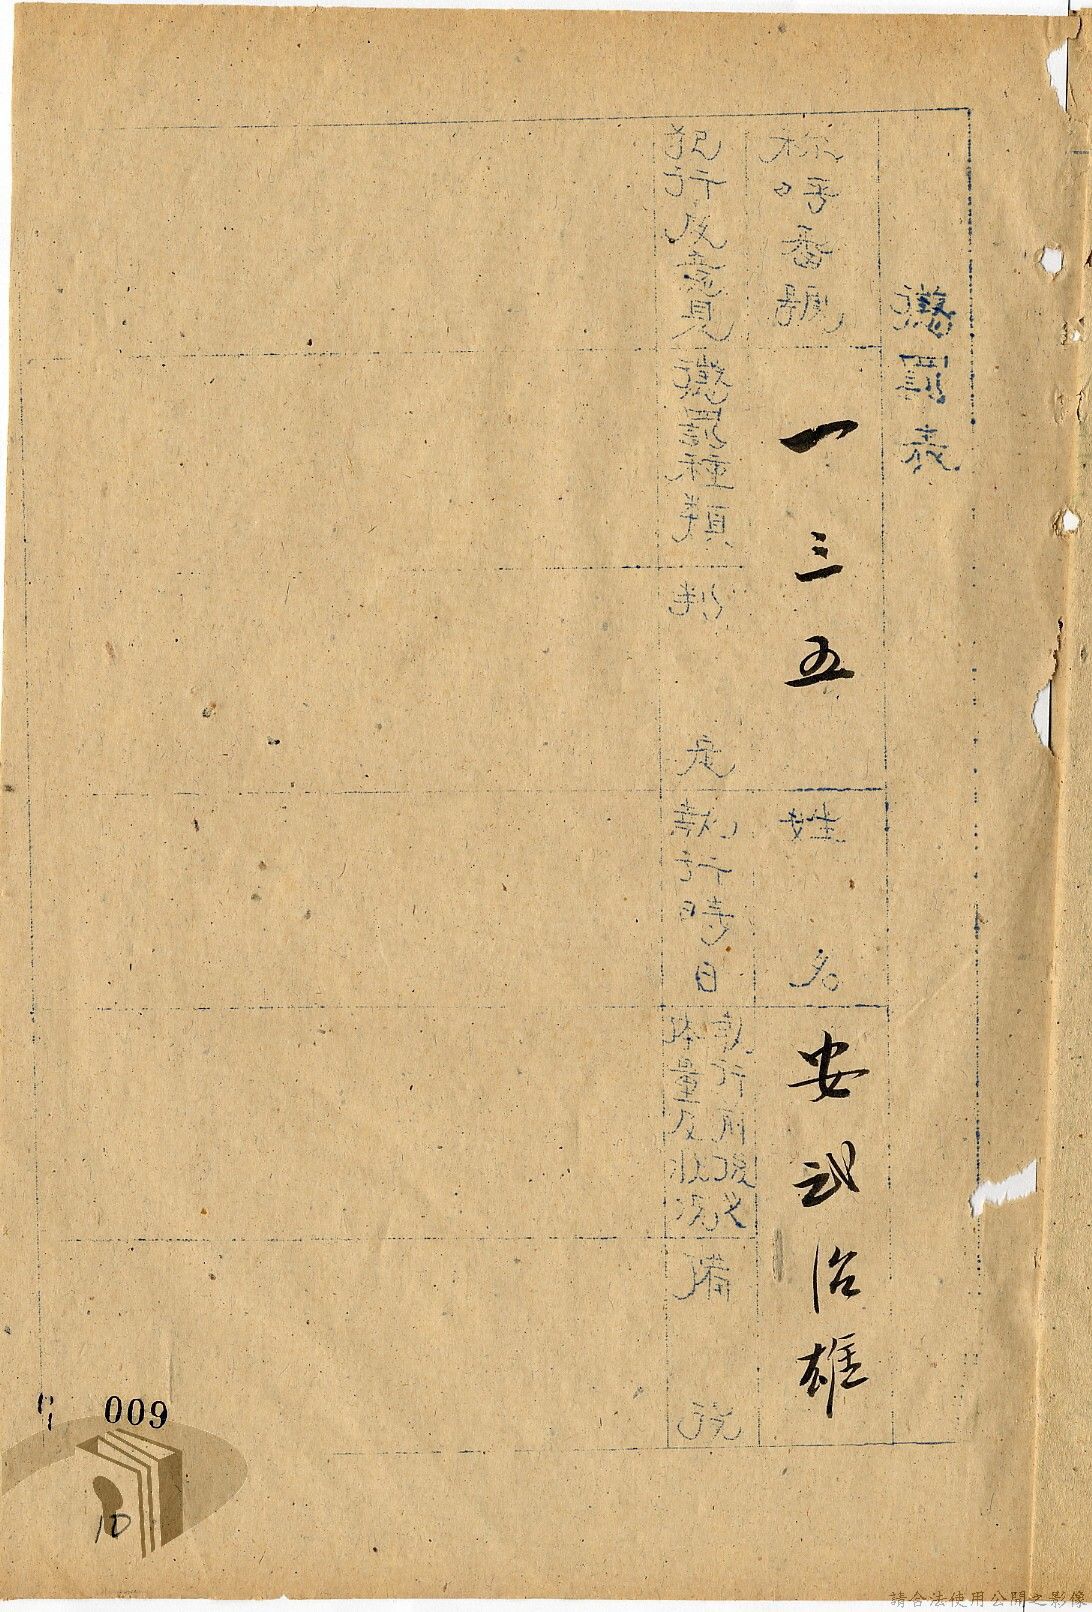 懲罰表
称呼番號
一三五
姓名
安武治雄
犯行及意見
懲罰種類
判定
執行時日
執行前後之
体量及狀況
備
009
10
請合法使用公開之影像